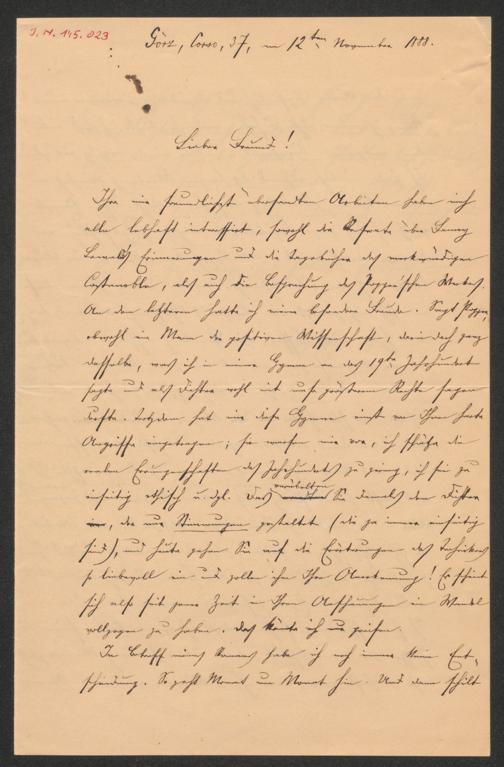 J. N. 145.023
Görz, Corso, 37, am 12ten November 1888.
Lieber Freund!
Ihre mir freundlichst übersandten Arbeiten haben mich
alle lebhaft interessiert, sowohl die Referate über Fanny
Lewald's Erinnerungen und die Tagebücher des merkwürdigen
Costenoble, als auch die Besprechung des Popper'schen Werkes.
An der letzteren hatte ich eine besondere Freude. Sagt Popper,
obwohl ein Mann der positiven Wissenschaft, darin doch ganz
dasselbe, was ich in einer Hymne an das 19te Jahrhundert
sagte und als Dichter wohl mit noch größerem Rechte sagen
durfte. Trotzdem hat mir diese Hymne einst von Ihnen harte
Angriffe eingetragen; Sie warfen mir vor, ich schätze die
realen Errungenschaften des Jahrhunderts zu gering, ich sei zu
einseitig ethisch u. dgl. Das verübelten Sie damals dem Dichter
, der nur Stimmungen gestaltet (die ja immer einseitig
sind), und heute gehen Sie auf die Erörterungen des Technikers
so liebevoll ein und zollen ihm Ihre Anerkennung! Es scheint
sich also seit jener Zeit in Ihren Anschauungen ein Wandel
vollzogen zu haben. Das könnte ich nur preisen.
In Betreff meines Romans habe ich noch immer keine Ent-
scheidung. So geht Monat um Monat hin. Und dann schilt